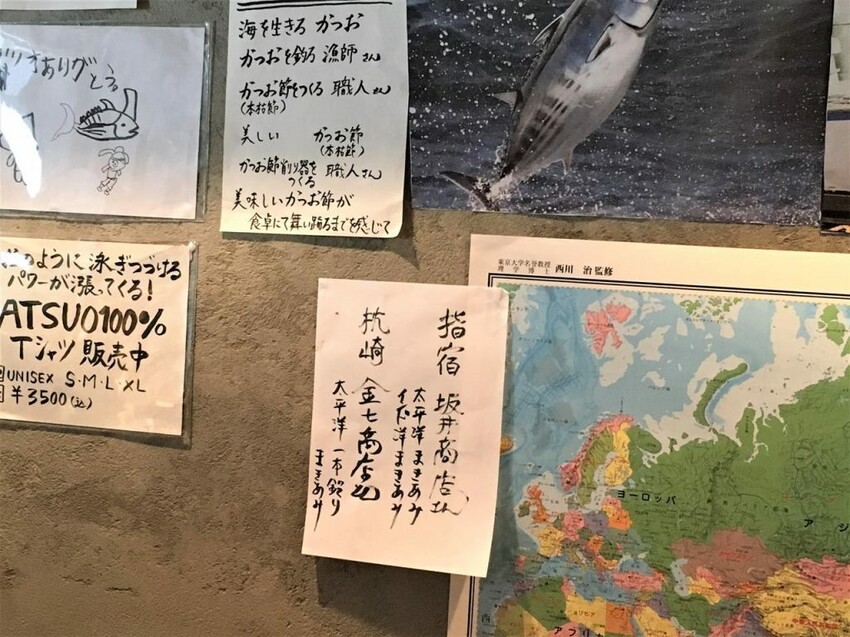 おありがとう。
海を生きる かつお
かつおを釣る 漁師さん
かつお節をつくる 職人さん
(本枯節)
美しい かつお節
(本枯節)
かつお節削り器を 職人さん
つくる
美味しいかつお節が
食卓にて舞い踊るまでを感じて
のように泳ぎつづける
パワーが漲ってくる!
ATSUO100%
Tシャツ 販売中
UNISEX S・M・L・XL
¥3500(込)
指宿 坂井商店さん
太平洋 まきあみ
インド洋 まきあみ
枕崎 金七商店さん
太平洋 一本釣り
まきあみ
東京大学名誉教授
理学博士 西川 治 監修
ヨーロッパ
ア ジ
アフリカ